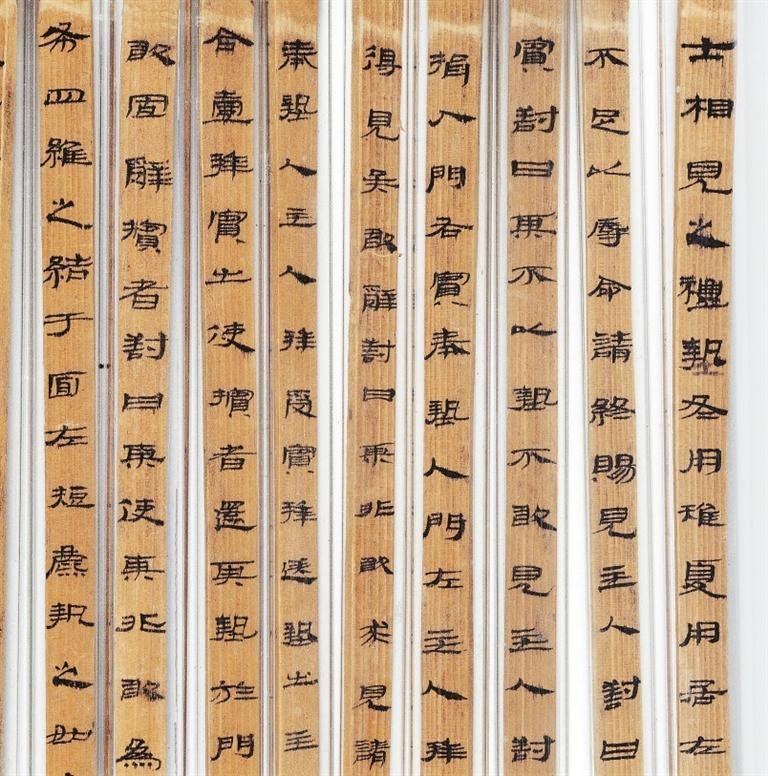 士相見之禮執冬用雉夏用居左
不足以辱命請終賜見主人對曰
賓對曰某不以摯不敢見主人對
揖入門右賓奉摯入門左主人拜
得見矣敢辭對曰某非敢求見請
奉摯入主人拜受賓拜送摯出主
合壹拜賓出使擯者還其摯於門
敢固辭擯者對曰某使某非敢為
布四維之結于面左短麃執之如